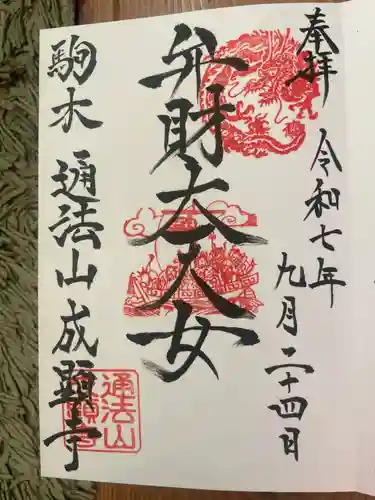 奉拝
令和七年
九月二十四日
弁財大天女
駒木
通法山成顕寺
通法山
成顕寺